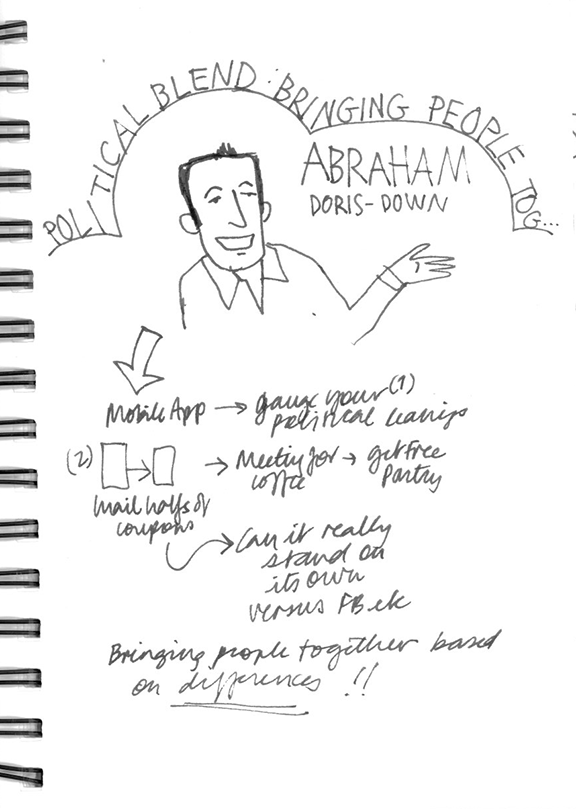 POLITICAL BLEND: BRINGING PEOPLE TOG...
ABRAHAM
DORIS-DOWN
Mobile App → gauge your (1)
political leanings
(2) → Meeting for → get free
coffee pastry
mail halfs of
coupons
Can it really
stand on
its own
versus FB etc
Bringing people together based
on differences !!